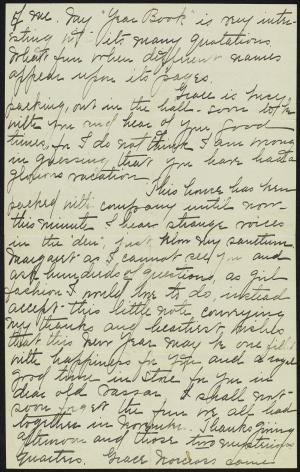 of me. My "Year Book" is very inter
esting with its many quotations.
What fun when different names
appear upon its pages.
Grace is busy
packing, out in the hall - soon to be
with you and hear of your good
times, for I do not think I am wrong
in guessing that you have had a
glorious vacation.
This house has been
packed with company until now
this minute I hear strange voices
in the "den", just below my sanctum.
Margaret as I cannot see you and
ask hundreds of questions, as girl
fashion I would love to do, instead
accept this little note conveying
my thanks and heartiest wishes
that this New Year may be one filled
with happiness for you and a royal
good time in store for you in
dear old Vassar. I shall not
soon forget the fun we all had
together in Thanksgiving
afternoon and those two mysterious
Grace